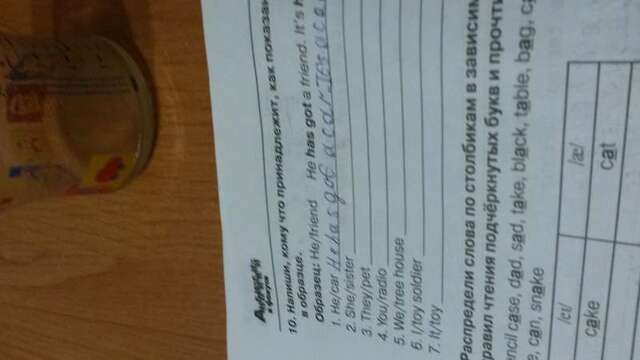 Английский
в фокусе
10. Напиши, кому что принадлежит, как показан
в образце.
Образец: He/friend He has got a friend. It's h
1. He/car He has got a car. It's
2. She/sister
3. They/pet
4. You/radio
5. We/tree house
6. I/toy soldier
7. It/toy
Распредели слова по столбикам в зависим
равил чтения подчёркнутых букв и прочти
ncil case, dad, sad, take, black, table, bag, c
e, can, snake
/eɪ/ /æ/
cake cat